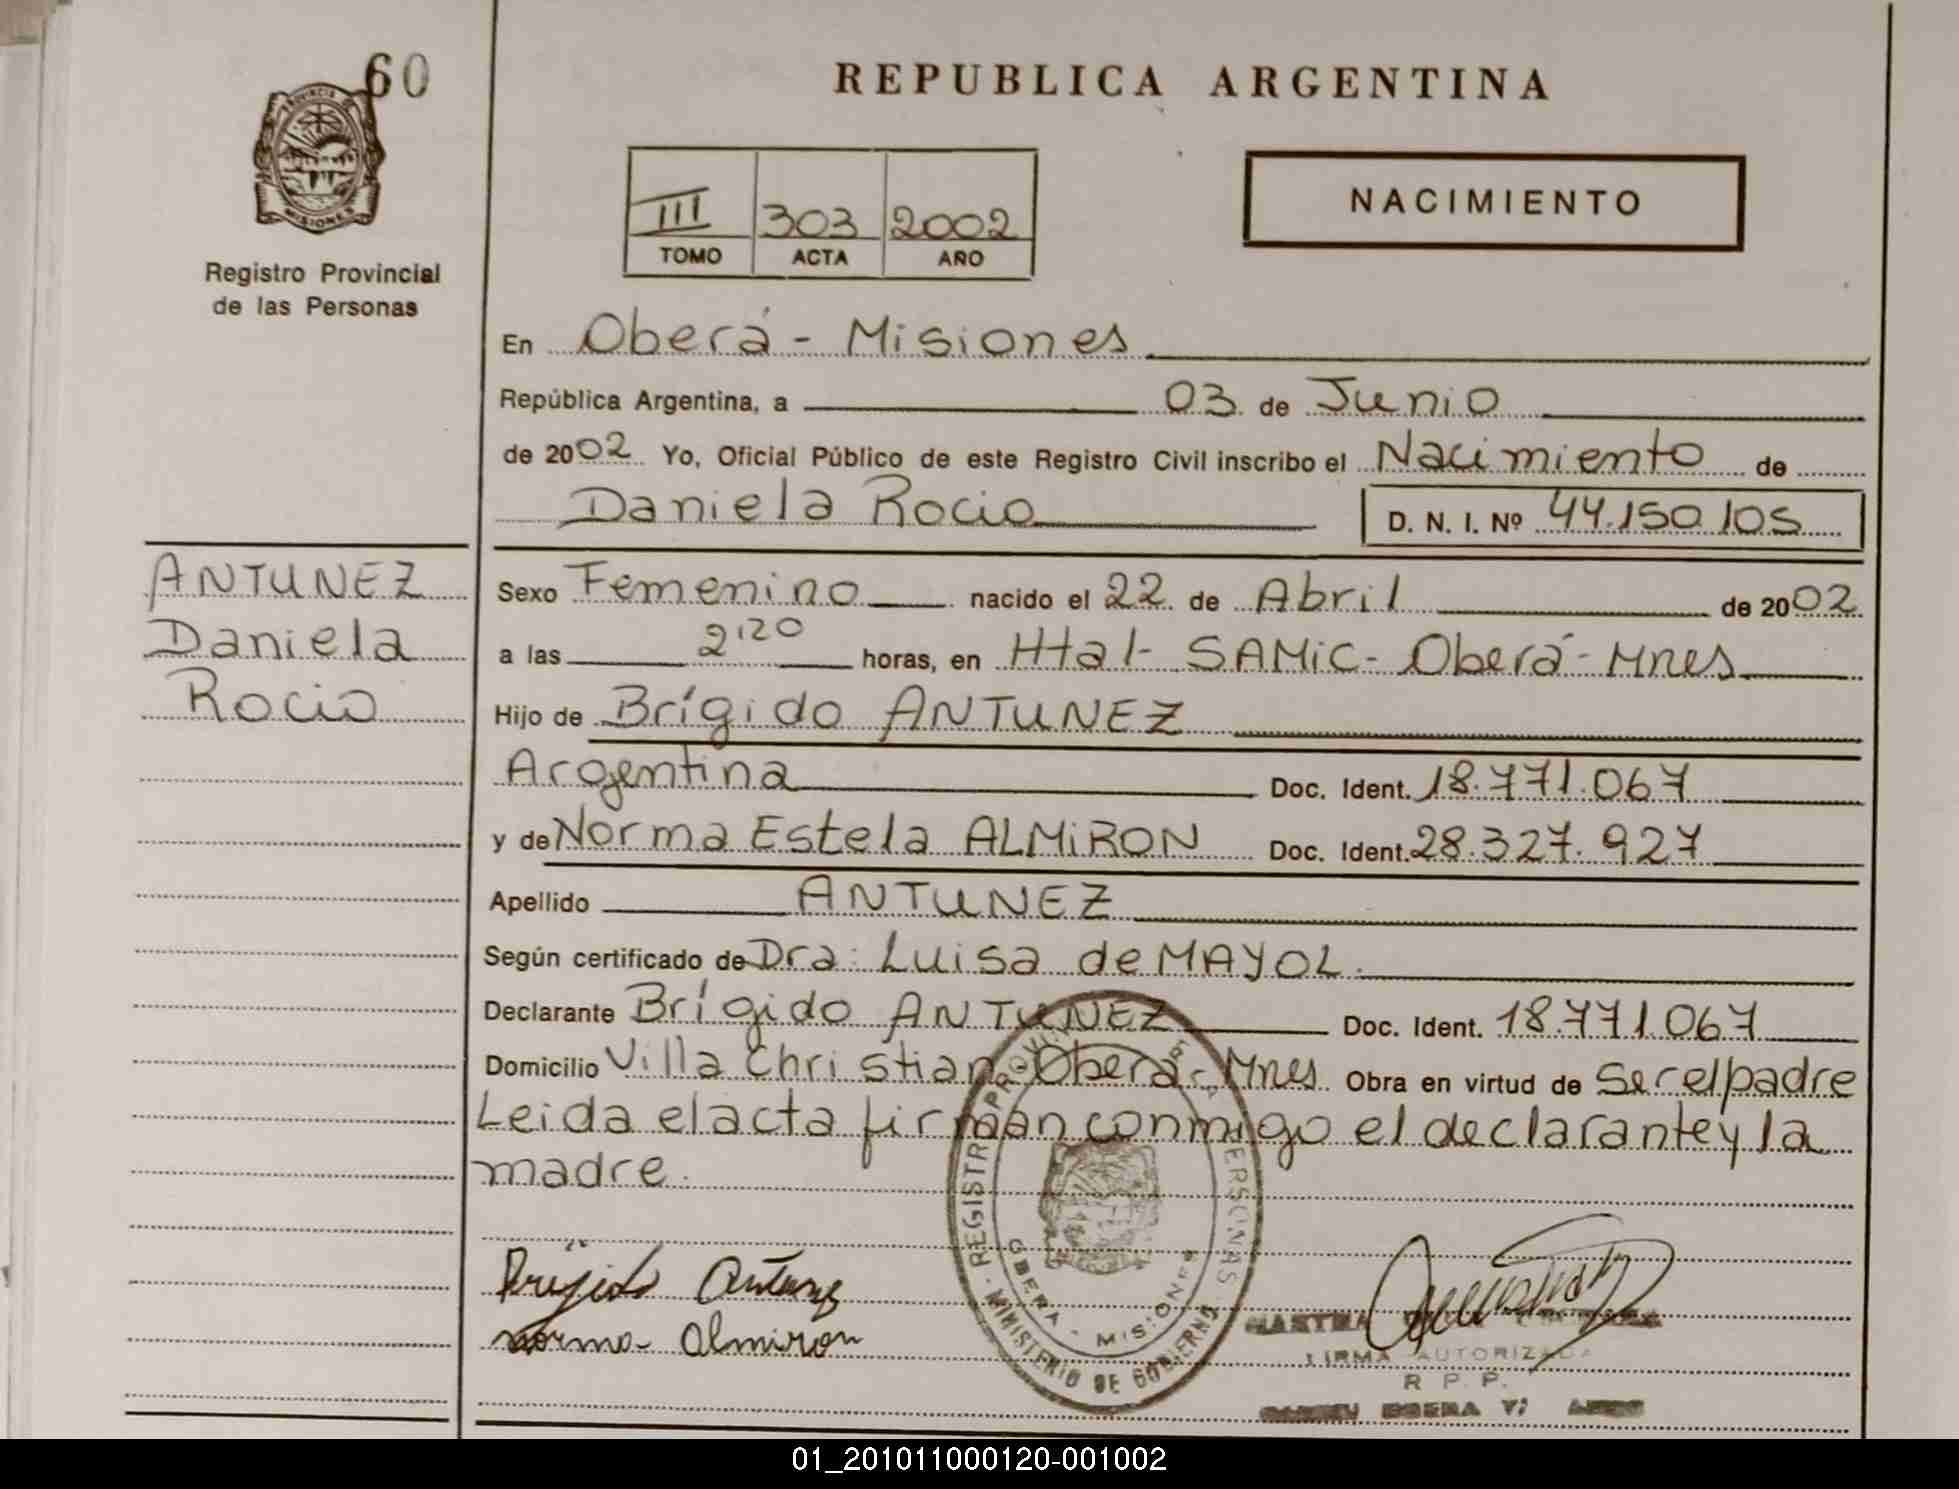 60
REPUBLICA ARGENTINA
PROVINCIA DE
MISIONES
Registro Provincial
de las Personas
III 303 2002
TOMO ACTA AÑO
NACIMIENTO
En Oberá - Misiones
República Argentina, a 03 de Junio
de 2002 Yo, Oficial Público de este Registro Civil inscribo el Nacimiento de
Daniela Rocio D. N. I. Nº 44.150.105
ANTUNEZ
Daniela
Rocio
Sexo Femenino nacido el 22 de Abril de 2002
a las 2'20 horas, en Htal- SAMiC- Oberá- Mnes
Hijo de Brígido ANTUNEZ
Argentina Doc. Ident. 18.771.067
y de Norma Estela ALMiRON Doc. Ident. 28.327.927
Apellido ANTUNEZ
Según certificado de Dra: Luisa de MAYOL.
Declarante Brígido ANTUNEZ Doc. Ident. 18.771.067
Domicilio Villa Christian Oberá- Mnes Obra en virtud de Ser el padre
Leida el acta firman conmigo el declarante y la
madre.
REGISTRO PROVI PERSONAS
OBERA - MISIONES
MINISTERIO DE GOBIERNO
Brijido Antunez
norma Almiron
FIRMA AUTORIZADA
R. P. P.
01_201011000120-001002